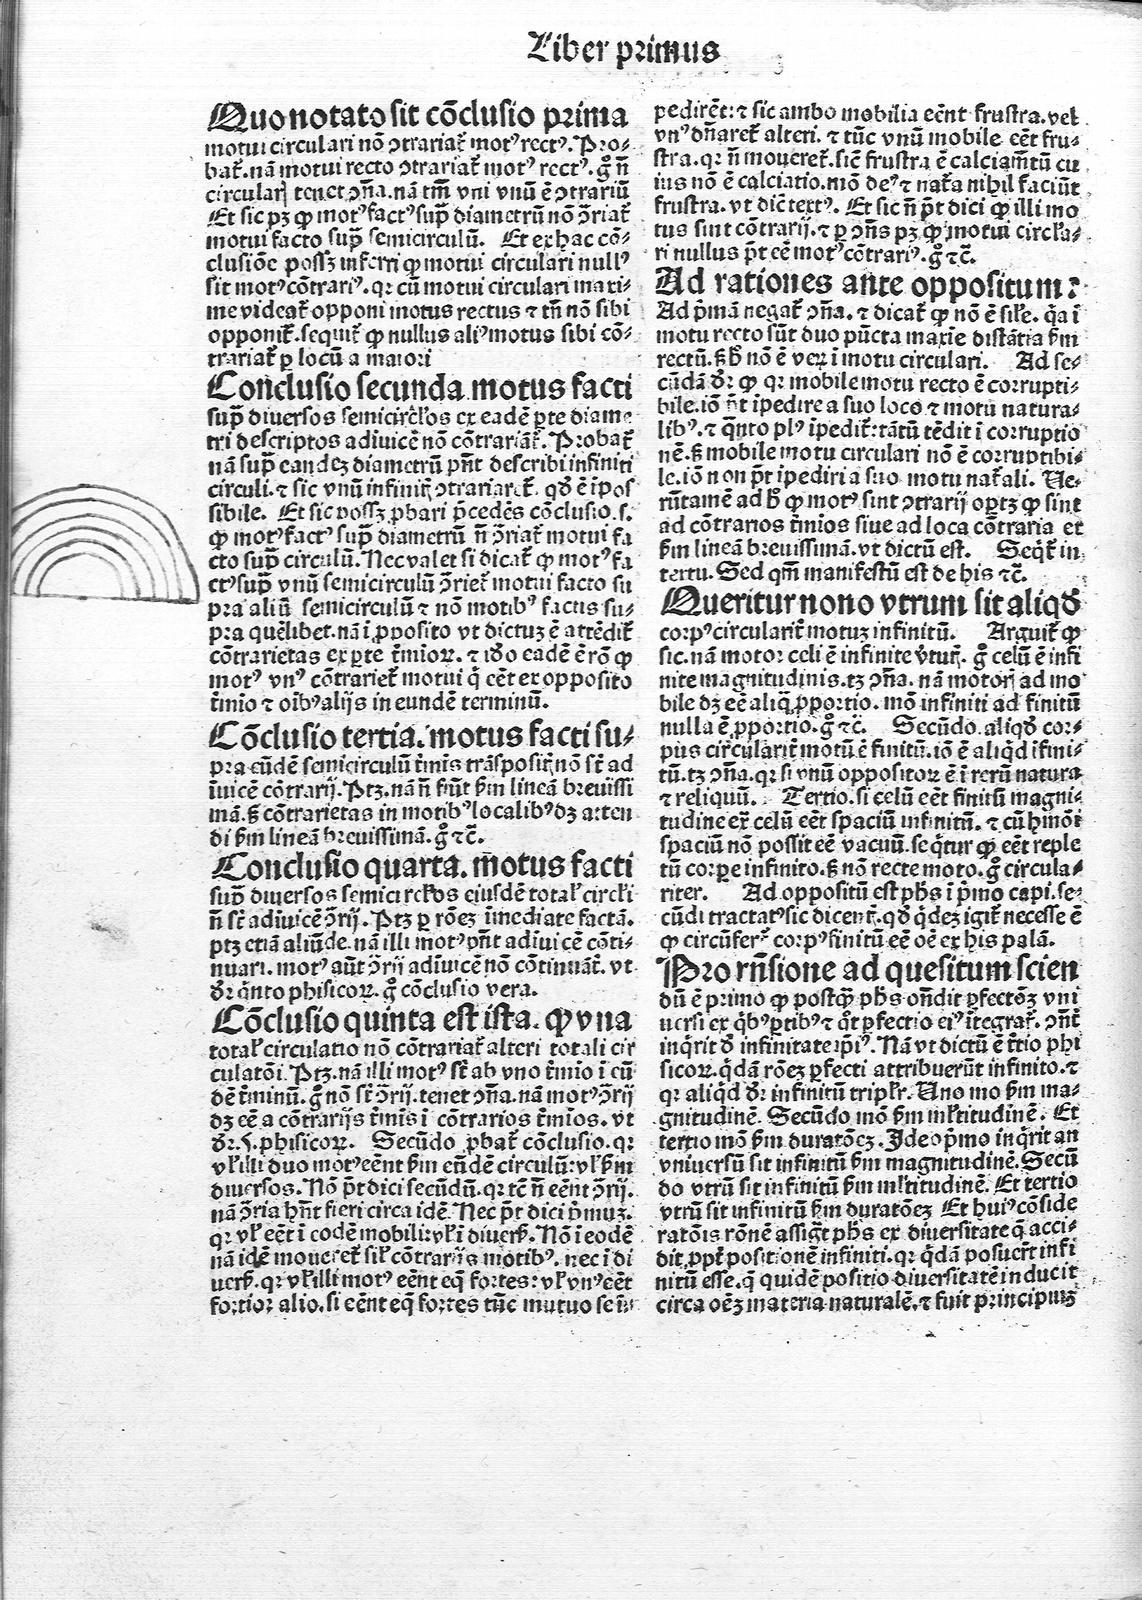 Liber primus
Quo notato sit cōclusio prima
motui circulari nō ↄtrariat̄ motꝰ rectꝰ. Pro⸗
bat̄. nā motui recto ↄtrariat̄ motꝰ rectꝰ. g̊ n̄
circulari tenet ↄñа. nā tm̄ vni vnū ē ↄtrariū
Et sic pꝫ ꝙ motꝰ factꝰ sup̄ diametrū nō ↄ̄riat̄
motui facto sup̄ semicirculū. Et ex hac cō⸗
clusiōe possꝫ inferri ꝙ motui circulari nullꝰ
sit motꝰ cōtrariꝰ. qꝛ cū motui circulari maxi⸗
me videat̄ opponi motus rectus ⁊ tn̄ nō sibi
opponit̄. sequit̄ ꝙ nullus aliꝰ motus sibi cō⸗
trariat̄ ꝑ locū a maiori
Conclusio secunda. motus facti
sup̄ diuersos semicirclos ex eadē ꝑte diame
tri descriptos adiuicē nō cōtrariāt̄. Probat̄
nā sup̄ eandeꝫ diametrū pn̄t describi infiniti
circuli. ⁊ sic vnū infinit̄ ↄtrariaret̄. qd̄ ē īpos
sibile. Et sic possꝫ ꝓbari p̄cedēs cōclusio. s.
ꝙ motꝰ factꝰ sup̄ diametrū n̄ ↄ̄riat̄ motui fa
cto sup̄ circulū. Nec valet si dicat̄ ꝙ motꝰ fa
ctꝰ sup̄ vnū semicirculū ↄ̄riet̄ motui facto su
pra aliū semicirculū ⁊ nō motibꝰ factis su⸗
pra quēlibet. nā ī ꝓposito vt dictuꝫ ē attēdit̄
cōtrarietas ex ꝑte t̄minoꝝ. ⁊ iō eadē ē rō ꝙ
motꝰ vnꝰ cōtrariet̄ motui q̄ eēt ex opposito
t̄mio ⁊ oībꝰ alijs in eundē terminū.
Cōclusio tertia. motus facti su⸗
pra eūdē semicirculū t̄mis trāsposit̄ nō st̄ ad
īuicē cōtrarij. Ptꝫ. nā n̄ fiūt ẜm lineā breuissi
mā. ꝫ cōtrarietas in motibꝰ localibꝰ dꝫ atten
di ẜm lineā breuissimā. g̊ ⁊c̄.
Conclusio quarta. motus facti
sup̄ diuersos semicirclos eiusdē total̄ circli
n̄ st̄ adiuicē ↄ̄rij. Ptꝫ ꝑ rōeꝫ īmediate factā.
ptꝫ etiā aliūde. nā illi motꝰ pn̄t adiuicē cōti⸗
nuari. motꝰ aūt ↄ̄rij adiuicē nō cōtinuāt̄. vt
dr̄ qnto phisicoꝝ. g̊ cōclusio vera.
Cōclusio quinta est ista. ꝙ vna
total̄ circulatio nō cōtrariat̄ alteri totali cir
culatōi. Ptꝫ. nā illi motꝰ st̄ ab vno t̄mio ī eū
dē t̄minū. g̊ nō st̄ ↄ̄rij. tenet ↄñа. nā motꝰ ↄ̄rij
dꝫ eē a cōtrarijs t̄mis ī cōtrarios t̄mios. vt
dr̄. 5. phisicoꝝ. Secūdo ꝓbat̄ cōclusio. qꝛ
vl̄ illi duo motꝰ eēnt ẜm eūdē circulū: vl̄ ẜm
diuersos. Nō pt̄ dici secūdū. qꝛ tc̄ n̄ eēnt ↄ̄rij.
nā ↄ̄ria hn̄t fieri circa idē. Nec pt̄ dici p̄muꝫ.
qꝛ vl̄ eēt ī eodē mobili: vl̄ ī diuers̄. Nō ī eodē
nā idē moueret̄ sil̄ cōtrarijs motibꝰ. nec ī di
uers̄. qꝛ vl̄ illi motꝰ eēnt eq̄ fortes: vl̄ vnꝰ eēt
fortior alio. si eēnt eq̄ fortes tūc mutuo se im
pedirēt: ⁊ sic ambo mobilia eēnt frustra. vel
vnꝰ dn̄aret̄ alteri. ⁊ tūc vnū mobile eēt fru⸗
stra. qꝛ n̄ moueret̄. sic̄ frustra ē calciam̄tū cu
ius nō ē calciatio. mō deꝰ ⁊ nat̄a nihil faciūt
frustra. vt dic̄ textꝰ. Et sic n̄ pt̄ dici ꝙ illi mo
tus sint cōtrarij. ⁊ ꝑ ↄñs pꝫ ꝙ motui circla⸗
ri nullus pt̄ eē motꝰ cōtrariꝰ. g̊ ⁊c̄.
Ad rationes ante oppositum:
Ad p̄mā negat̄ ↄñа. ⁊ dicat̄ ꝙ nō ē sil̄e. q̄a ī
motu recto sūt duo pūcta maxīe distātia ẜm
rectū. ꝫ h̄ nō ē veꝝ ī motu circulari. Ad se⸗
cūdā dr̄ ꝙ qꝛ mobile motu recto ē corrupti⸗
bile. iō pt̄ īpedire a suo loco ⁊ motu natura⸗
libꝰ. ⁊ q̄nto plꝰ īpedit̄: tātū tēdit ī corruptio
nē. ꝫ mobile motu circulari nō ē corruptibi⸗
le. iō non pt̄ ipediri a suo motu nat̄ali. Ue⸗
rūtamē ad h̄ ꝙ motꝰ sint ↄtrarij optꝫ ꝙ sint
ad cōtrarios t̄mios siue ad loca cōtraria et
ẜm lineā breuissimā. vt dictū est. Seqt̄ in
textu. Sed qm̄ manifestū est de his ⁊c̄.
Queritur nono vtrum sit aliqd̄
corpꝰ circularit̄ motuꝫ infinitū. Arguit̄ ꝙ
sic. nā motor celi ē infinite v̄tut̄. g̊ celū ē infi
nite magnitudinis. tꝫ ↄñа. nā motorꝭ ad mo
bile dꝫ eē aliq̄ ꝓportio. mō infiniti ad finitū
nulla ē ꝓportio. g̊ ⁊c̄. Secūdo. aliqd̄ cor⸗
pus circularit̄ motū ē finitū. iō ē aliqd̄ īfini⸗
tū. tꝫ ↄñа. qꝛ si vnū oppositoꝝ ē ī rerū natura
⁊ reliquū. Tertio. si celū eēt finitū magni⸗
tudine ext̄ celū eēt spaciū infinitū. ⁊ cū hmōi
spaciū nō possit eē vacuū. seqtur ꝙ eēt reple
tū corꝑe infinito. ꝫ nō recte moto. g̊ circula⸗
riter. Ad oppositū est ph̄s ī p̄mo capi. se⸗
cūdi tractatꝰ sic dicent̄. qd̄ qdeꝫ igit̄ necesse ē
ꝙ circūfer̄ corpꝰ finitū eē oē ex his palā.
Pro rn̄sione ad quesitum scien
dū ē primo ꝙ postꝙ̄ ph̄s on̄dit ꝑfectōeꝫ vni
uersi ex qbꝰ ꝑtibꝰ ⁊ qt̄ ꝑfectio eiꝰ ītegrat̄. ↄn̄t̄
inqrit d̄ infinitate ip̄iꝰ. Nā vt dictū ē t̄tio phi
sicoꝝ. qdā rōeꝫ ꝑfecti attribuerūt infinito. ⁊
qꝛ aliqd̄ dr̄ infinitū tripl̄r. Uno mo ẜm ma⸗
gnitudinē. Secūdo mō ẜm ml̄titudinē. Et
tertio mō ẜm duratōeꝫ. Ideo p̄mo inqrit an
vniuersū sit infinitū ẜm magnitudinē. Secū
do vtrū sit infinitū ẜm ml̄titudinē. Et tertio
vtrū sit infinitū ẜm duratōeꝫ Et huiꝰ cōside
ratōis rōnē assigt̄ ph̄s ex diuersitate q̄ acci⸗
dit ꝓpt̄ positionē infiniti. qꝛ qdā posuer̄t infi
nitū esse. q̄ quidē positio diuersitatē inducit
circa oēꝫ materiā naturalē. ⁊ fuit principiuꝫ